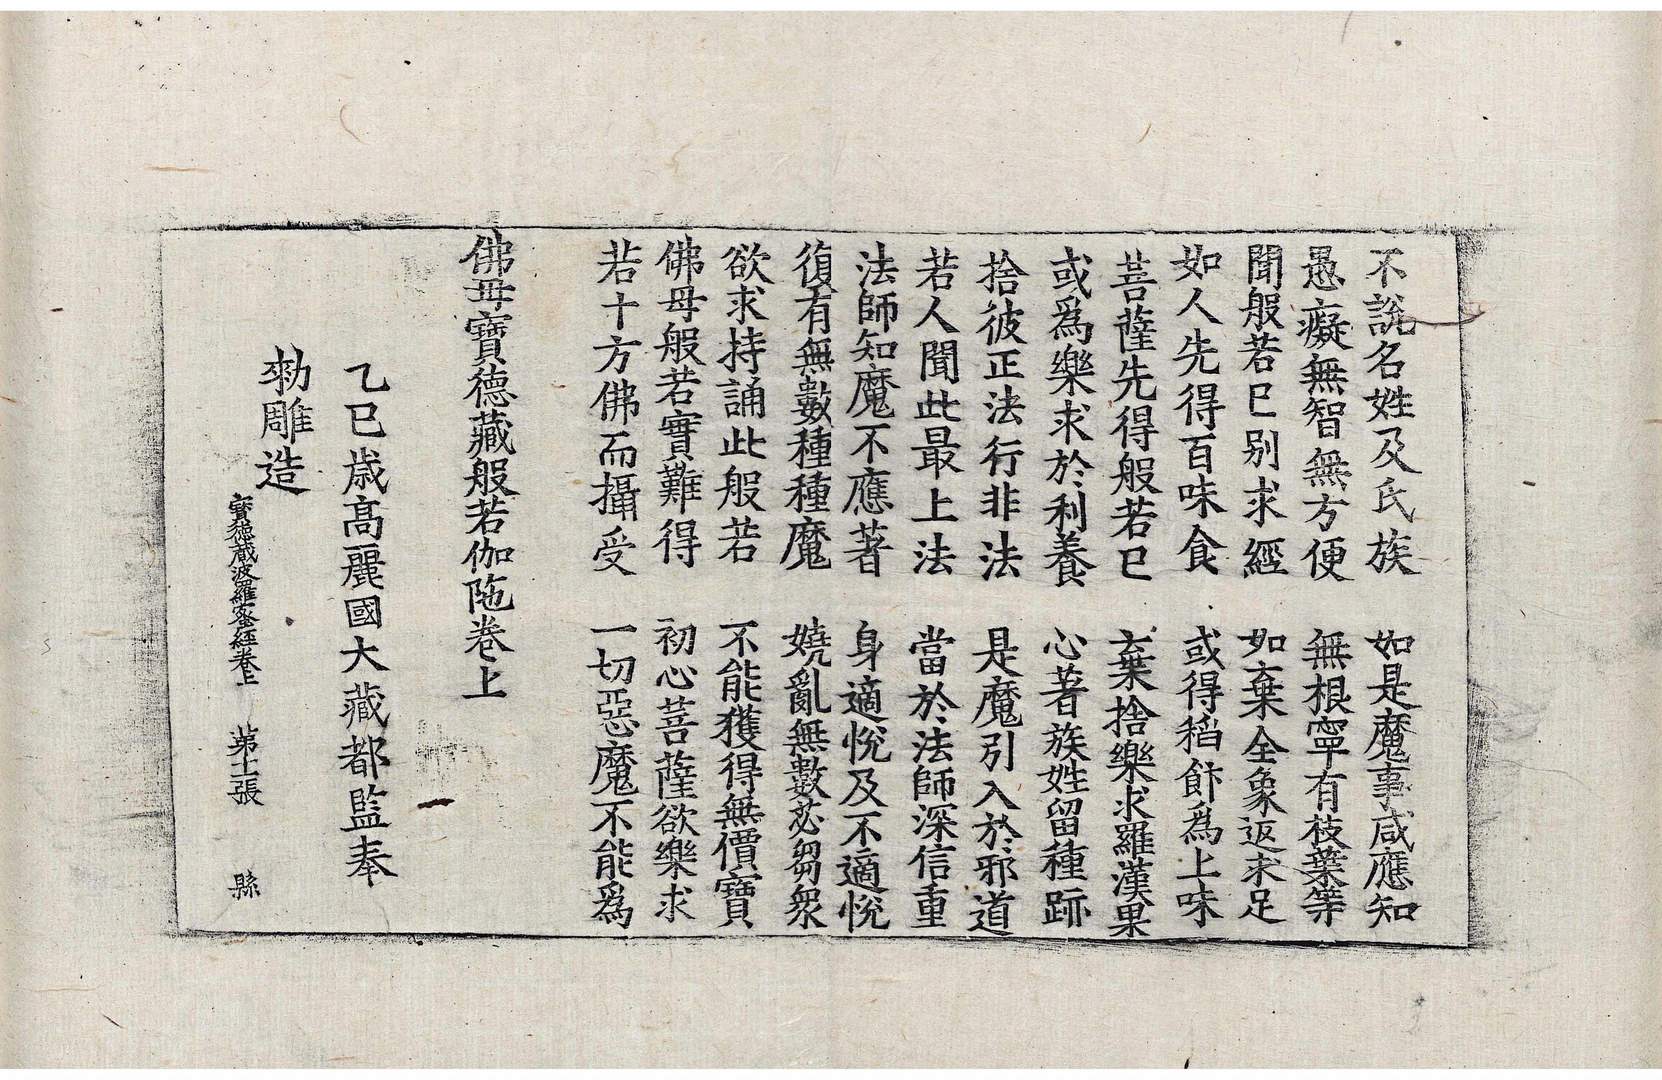 不說名姓及氏族　如是魔事咸應知
愚癡無智無方便　無根寧有枝葉等
聞般若已別求經　如棄全象返求足
如人先得百味食　或得稻飰爲上味
菩薩先得般若已　棄捨樂求羅漢果
或爲樂求於利養　心著族姓留種跡
捨彼正法行非法　是魔引入於邪道
若人聞此最上法　當於法師深信重
法師知魔不應著　身適悅及不適悅
復有無數種種魔　嬈亂無數苾芻衆
欲求持誦此般若　不能獲得無價寶
佛母般若實難得　初心菩薩欲樂求
若十方佛而攝受　一切惡魔不能爲
佛母寶德藏般若伽陁卷上
乙巳歳高麗國大藏都監奉
勑雕造
寶德藏波羅蜜經卷上　第十張　縣